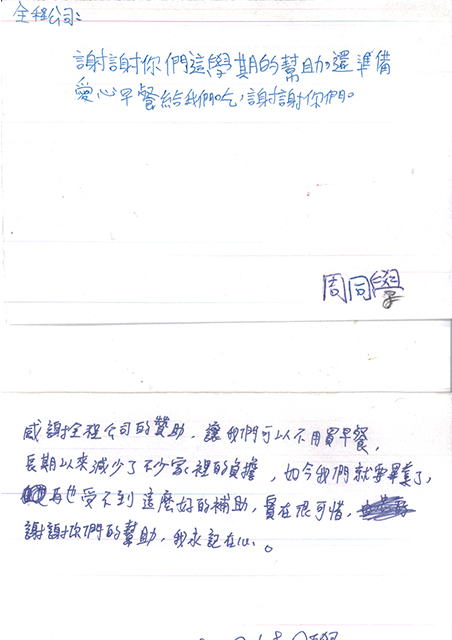 全程公司:
謝謝你們這學期的幫助，還準備
愛心早餐給我們吃，謝謝你們。
周同學
感謝全程公司的贊助，讓我們可以不用買早餐，
長期以來減少了不少家裡的負擔，如今我們就要畢業了，
再也受不到這麼好的補助，實在很可惜，
謝謝你們的幫助，我永記在心。